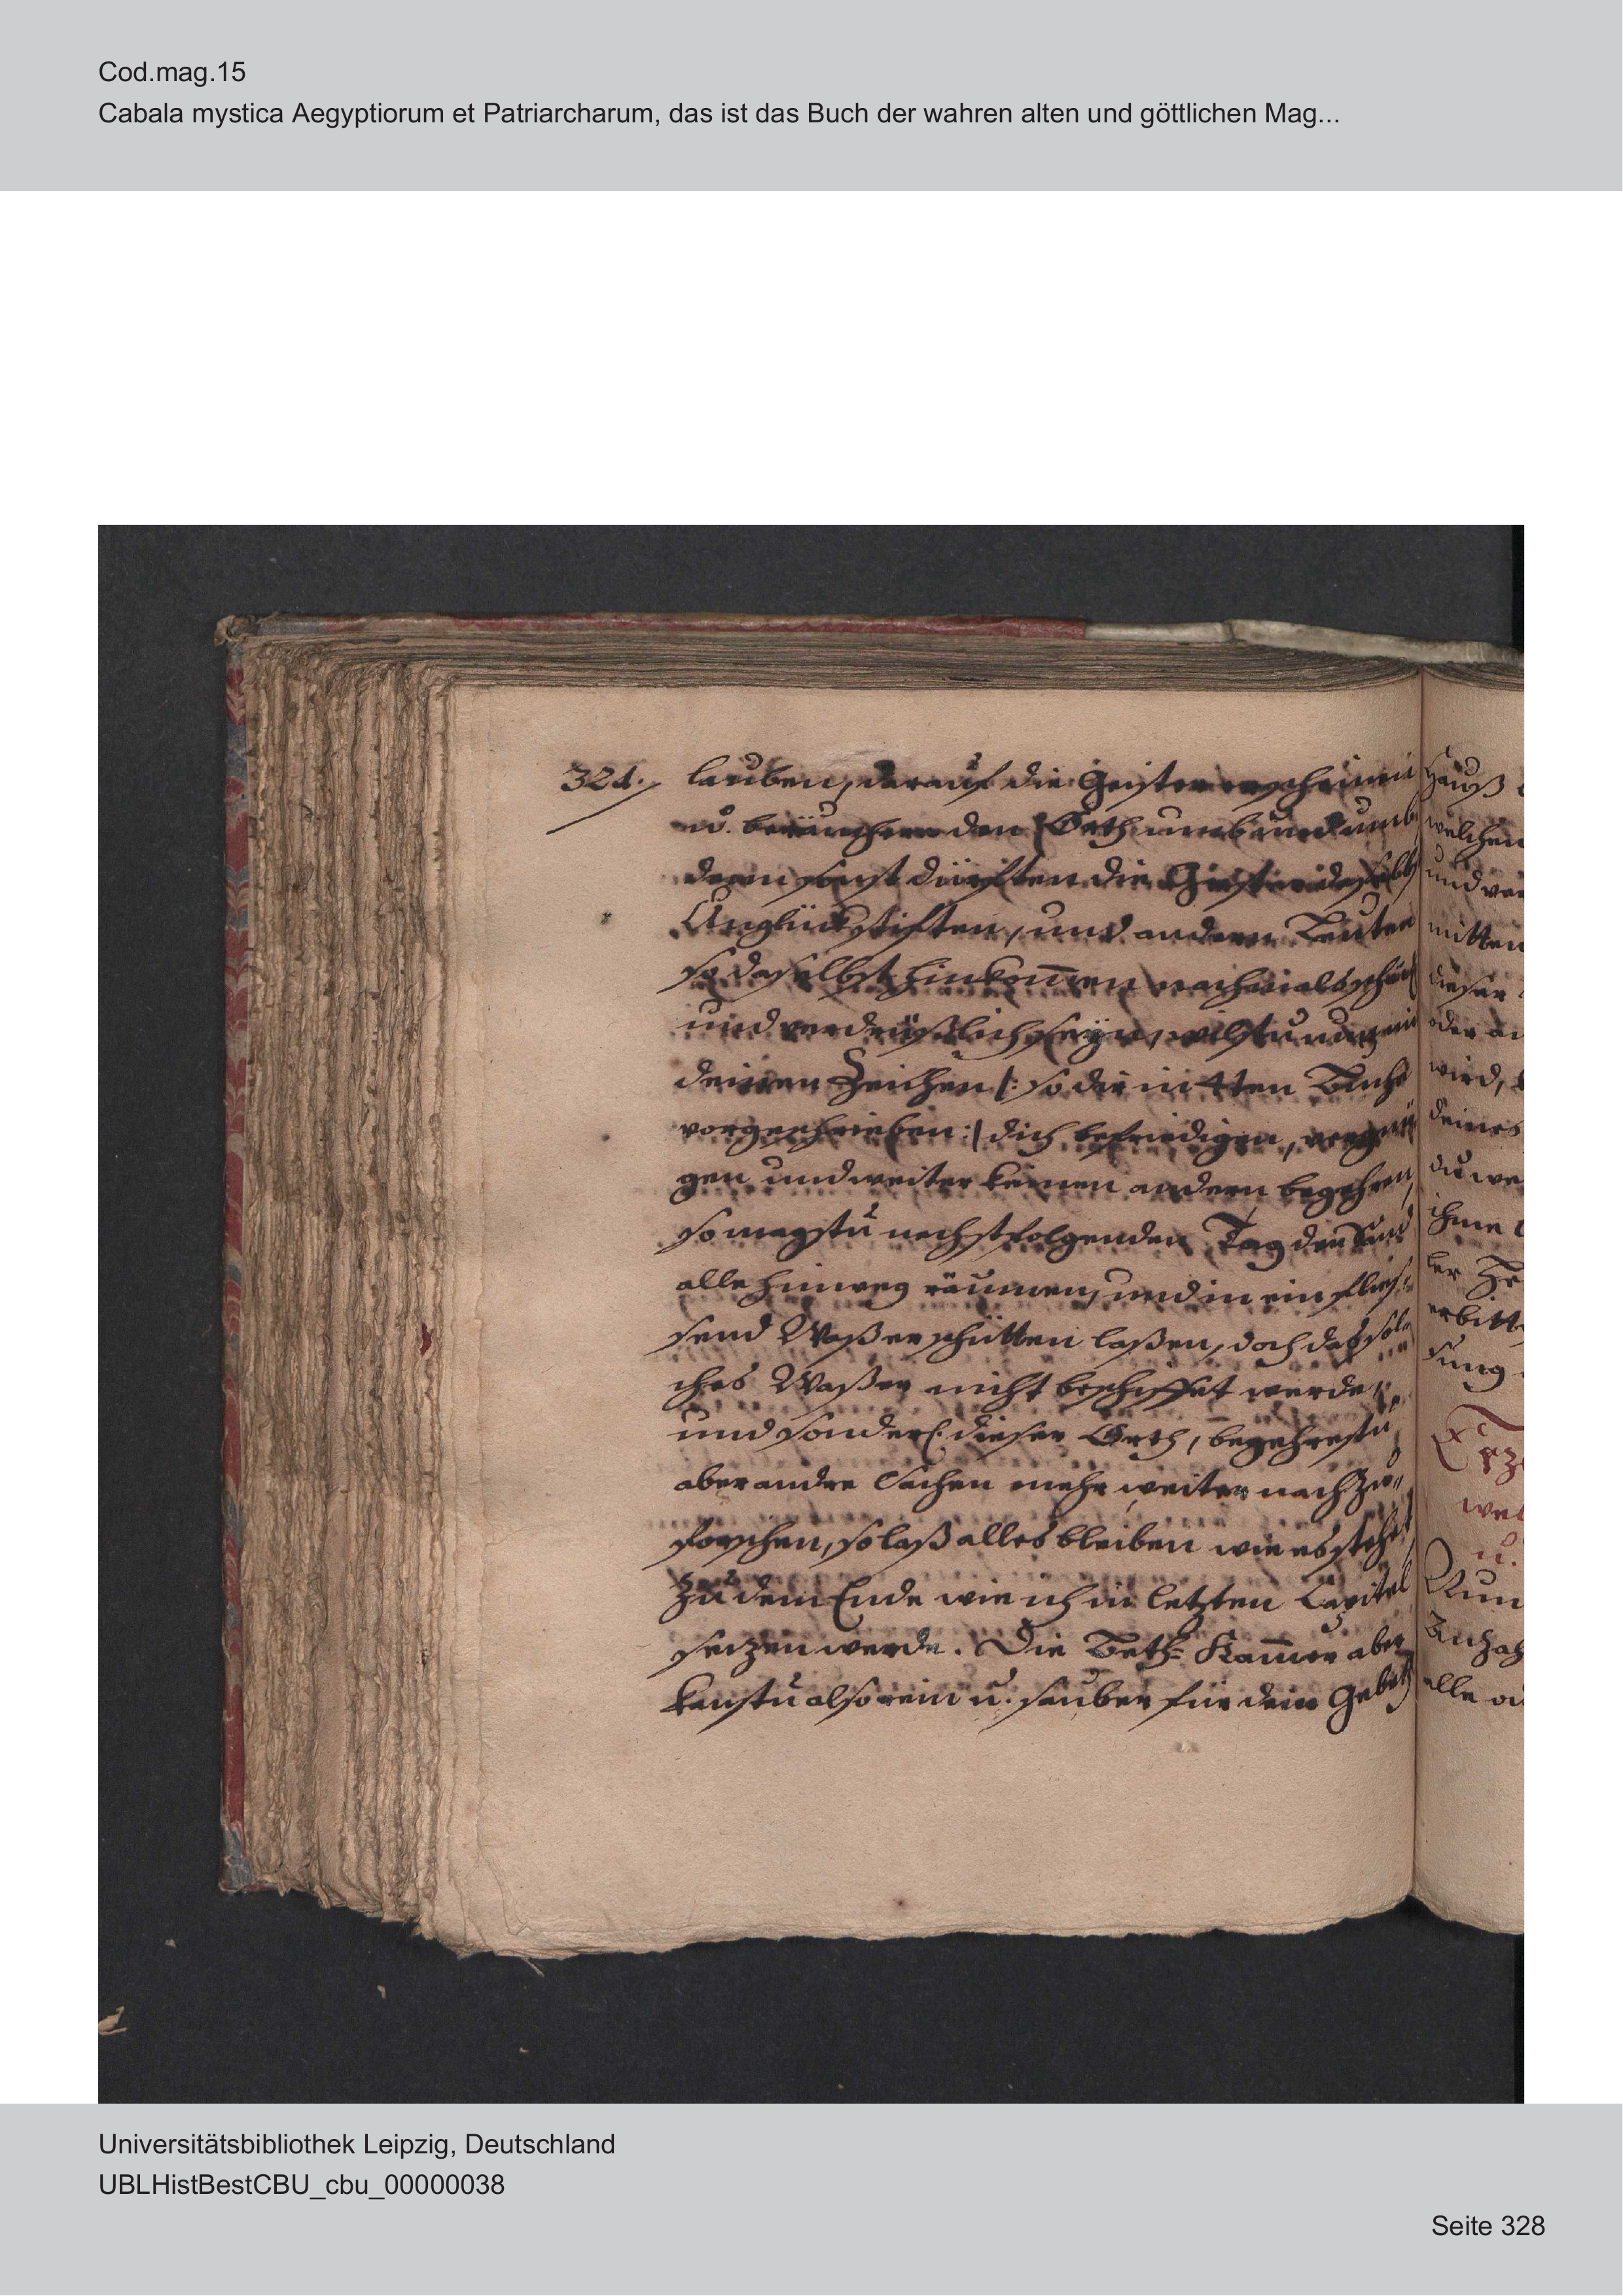 Cod.mag.15
Cabala mystica Aegyptiorum et Patriarcharum, das ist das Buch der wahren alten und göttlichen Mag...
324. lauben, darauf die Geister erscheinen
u. beräuchere den Orth umb und umb,
denn sonst dürfften die Geister daselbst
Unglück stifften, und andern Leuten
so daselbst hinkom̄en nachmals schäd
und verdrüßlich seÿn, wilstu nun mit
deinen Zeichen /: so dir in 4ten Buche
vorgeschrieben :/ dich befriedigen, vergnü
gen und weiter keinen andern begehren,
so magstu nechstfolgenden Tag den Sand
alle hinweg räumen, und in ein flies=
send Waßer schütten laßen, doch das sol=
ches Waßer nicht beschiffet werde,
und sonderl. dieser Orth, begehrestu
aber andre Sachen mehr weiter nachzu=
forschen, so laß alles bleiben wie es stehet,
zu dem Ende wie ich im letzten Capitel
setzen werde. Die Beth= Kam̄er aber
kanstu also rein u. sauber für dein Gebeth
Hauß
welchen
und
mitten
dieser
oder
wird,
deines
du
ihme
ler
erbitt
sung
wel
u.
Nun
alle
Universitätsbibliothek Leipzig, Deutschland
UBLHistBestCBU_cbu_00000038
Seite 328